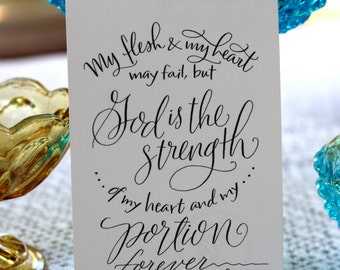 My flesh & my heart
may fail, but
God is the
strength
...of my heart and my...
portion
forever